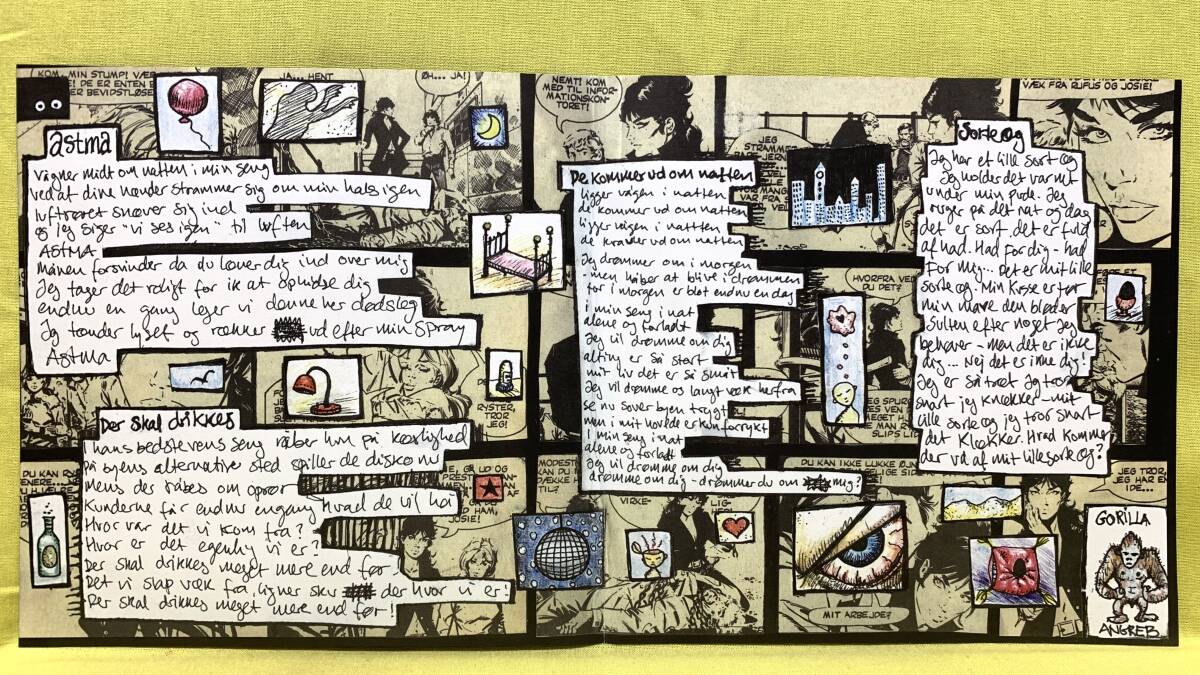 KOM.. MIN STUMP! VÆR
DE ER ENTEN
BEVIDSTLØSE
JA... HENT
ØH... JA!
Astma
Vågner midt om natten i min seng
ved at dine hænder strammer sig om min hals igen
luftrøret snøver sig ind
og jeg siger "vi ses igen" til luften
ASTMA
Månen forsvinder da du læner dig ind over mig
Jeg tager det roligt for ik at ophidse dig
endnu en gang leger vi denne her dødsleg
Jg tænder lyset og rækker ud efter min spray
Astma
RYSTER,
TROR
JEG!
Der skal drikkes
Hans bedstevens seng råber hm på kærlighed
På byens alternative sted spiller de disko nu
Mens der råbes om oprør
Kunderne får endnu engang hvad de vil ha
Hvor var det vi kom fra?
Hvor er det egenlig vi er?
Der skal drikkes meget mere end før
Det vi slap væk fra, ligner skv der hvor vi er!
Der skal drikkes meget mere end før!
DU KAN
GÅ UD OG
HAM,
JOSIE!
NEMT! KOM
MED TIL INFOR-
MATIONSKON-
TORET!
JEG
STRAMMER
De kommer ud om natten
ligger vågen i natten
de kommer ud om natten
ligger vågen i nattten
de kravler ud om natten
Jg drømmer om i morgen
men håber at blive i drømmen
for i morgen er blot endnu en dag
i min seng i nat
alene og forladt
Jg vil drømme om dig
alting er så stort
mit liv det er så småt
Jeg vil drømme og langt væk herfra
se nu sover byen trygt
men i mit hovede er kun forrykt
i min seng i nat
alene og forladt
Jg vil drømme om dig
drømme om dig - drømmer du om mig?
VIRKE-
LIG-
HVORFRA VED
DU DET?
VÆK FRA RUFUS OG JOSIE!
Sorte æg
Jeg har et lille sort æg
Jeg holder det varmt
under min pude. Jeg
ruger på det nat og dag
det er sort, det er fuld
af had. Had for dig - had
for mig... Det er mit lille
sorte æg. Min kæse er tør
min mave den bløder
Sulten efter noget jeg
behøver - men det er ikke
dig... Nej det er ikke dig!
Jeg er så træt jg tror
snart jeg knækker - mit
lille sorte æg jg tror snart
det klækker. Hvad kommer
der ud af mit lille sorte æg?
DU KAN IKKE LUKKE
MIT ARBEJDE?
JEG TROR,
JEG HAR EN
IDE...
GORILLA
ANGREB